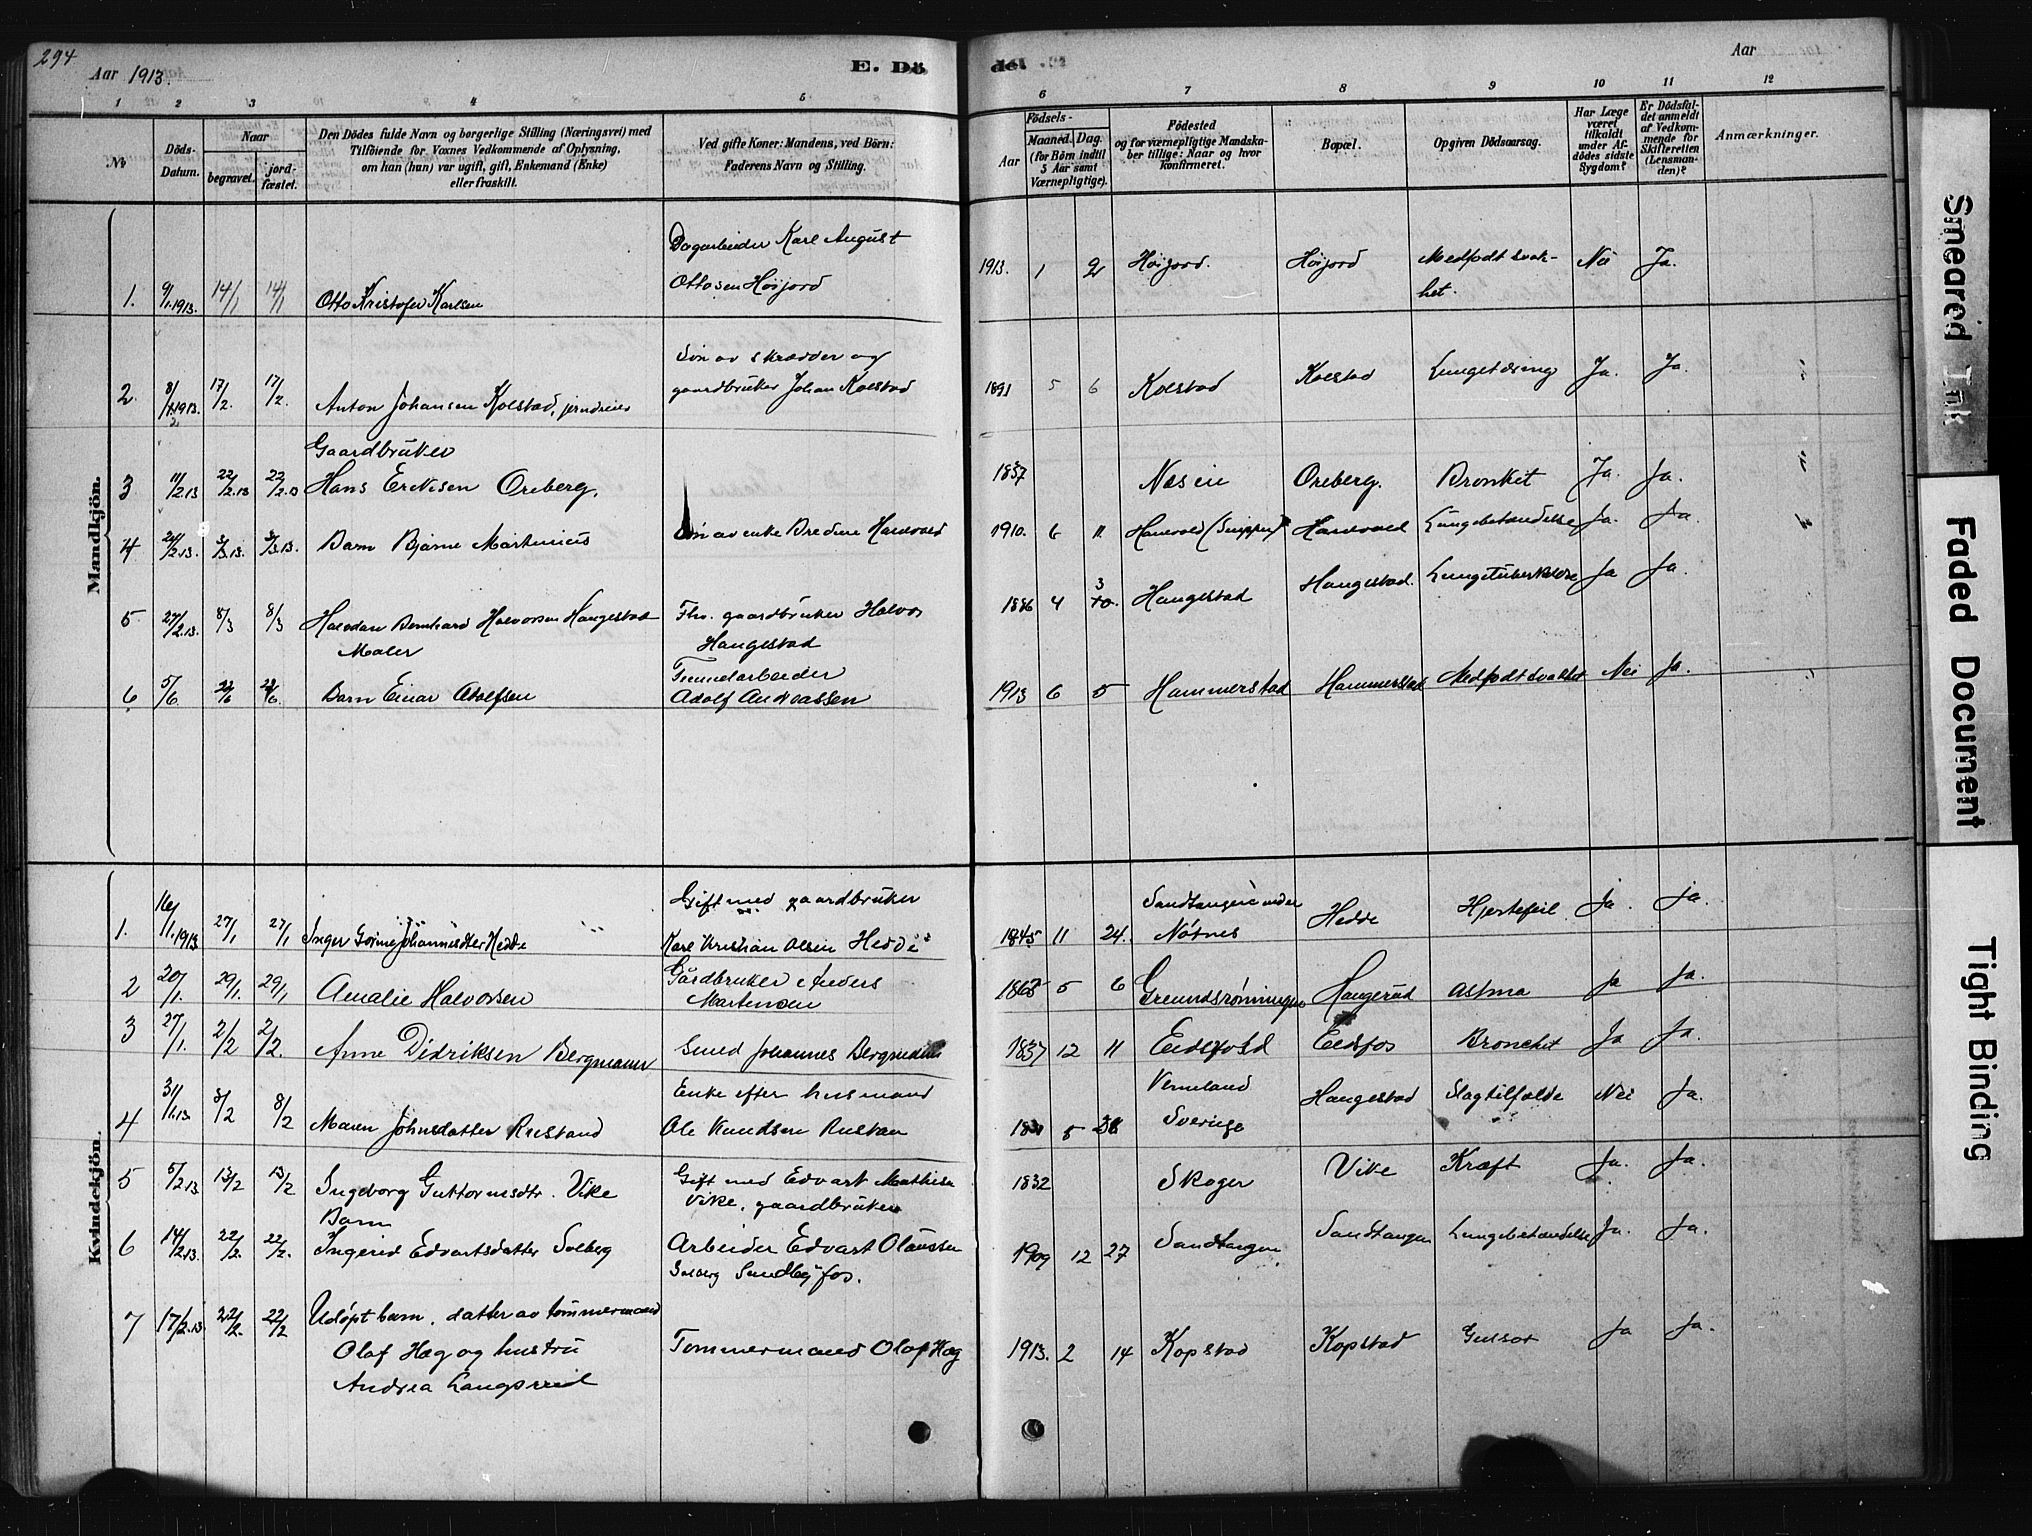 294
Aar 1913.
E. Dö
de.
Aar
1 2 3 4 5 6 7 8 9 10 11 12
No
Döds-
Datum.
Naar
begravet.
jord-
fæstet.
Den Dödes fulde Navn og borgerlige Stilling (Næringsvei) med
Tilföiende for Voxnes Vedkommende af Oplysning,
om han (hun) var ugift, gift, Enkemand (Enke)
eller fraskilt.
Ved gifte Koner: Mandens, ved Börn:
Faderens Navn og Stilling.
Födsels-
Aar
Maaned. Dag.
(for Börn indtil
5 Aar samt
Værnepligtige).
Födested
og for værnepligtige Mandska-
ber tillige: Naar og hvor
konfirmeret.
Bopæl.
Opgiven Dödsaarsag.
Har Læge
været
tilkaldt
under Af-
dödes sidste
Sygdom?
Er Dödsfal-
det anmeldt
af Vedkom-
mende for
Skifteretten
(Lensman-
den)?
Anmærkninger.
Mandkjön.
Dagarbeider Karl August
1. 9/1.1913. 14/1 14/1 Otto Kristofer Karlsen Ottosen Höijord 1913. 1 2 Höijord. Höijord Medfödt svak- Nei Ja.
het.
Søn av skrædder og
2. 8/2 1913. 17/2. 17/2. Anton Johansen Kolstad, jerndreier gaardbruker Johan Kolstad 1891 5 6 Kolstad Kolstad Lungetæring Ja. Ja.
Gaardbruker
3 11/2.13 22/2.13 22/2.13 Hans Eriksen Oreberg. 1857 Oreberg. Bronkit Ja. Ja.
4 24/2.13. 3/3.13. 3/3.13. Barn Bjarne Martinius Søn av enke Bredine Hanevold 1910. 6 11 Hanevold Hanevold Lungebetændelse Ja. Ja.
5 27/2.13. 8/3 8/3 Halvdan Bernhard Halvorsen Hangestad Fhv. gaardbruker Halvor 1886 4 3 Hangestad Hangestad Lungetuberkulose Ja Ja.
Maler Hangestad
Tunnelarbeider
6 5/6 22/6 22/6. Barn Einar Adolfsen Adolf Andreassen 1913 6 5 Hammerstad Hammerstad Medfødt svakhet Nei Ja.
Kvindekjön.
Gift med gaardbruker Sandtangen under
1. 16/1.1913 27/1 27/1 Inger Gorine Johannesdter Hedde Karl Kristian Olsen Hedde 1845 11 24. Nötnes Hedde Hjertefeil Ja. Ja.
2 20/1. 29/1. 29/1 Amalie Halvorsen Gårdbruker Anders 1868 5 6 Hangerud Astma Ja Ja.
Martinsen
3 27/1. 2/2 2/2. Anne Didriksen Bergmann Smed Johannes Bergmann 1837 12 11 Eidsfos Bronchit Ja Ja.
Enke efter husmand Vermland
4 31/1.13 8/2 8/2 Maren Johnsdatter Rustand Ole Knudsen Rustan 5 Sverige Hangestad Slagtilfælde Nei Ja.
5 5/2.13 13/2 13/2 Ingeborg Guttormsdtr. Vike Gift med Edvart Mathisen 1832 Skoger Vike Kræft Ja. Ja.
Vike, gaardbruker
Barn
6 14/2.13. 22/2. 22/2. Ingerid Edvartsdatter Solberg Arbeider Edvart Olaussen 1909 12 27 Sandtangen Sandtangen Lungebetændelse Ja. Ja.
Solberg Sundbyfos.
7 17/2.13. 22/2. 22/2 Udöpt barn, datter av tömmermand
Olaf Hag og hustru Tømmermand Olaf Hag 1913. 2 14 Kopstad Kopstad Gulsot Ja Ja.
Andrea
Smeared Ink
Faded Document
Tight Binding